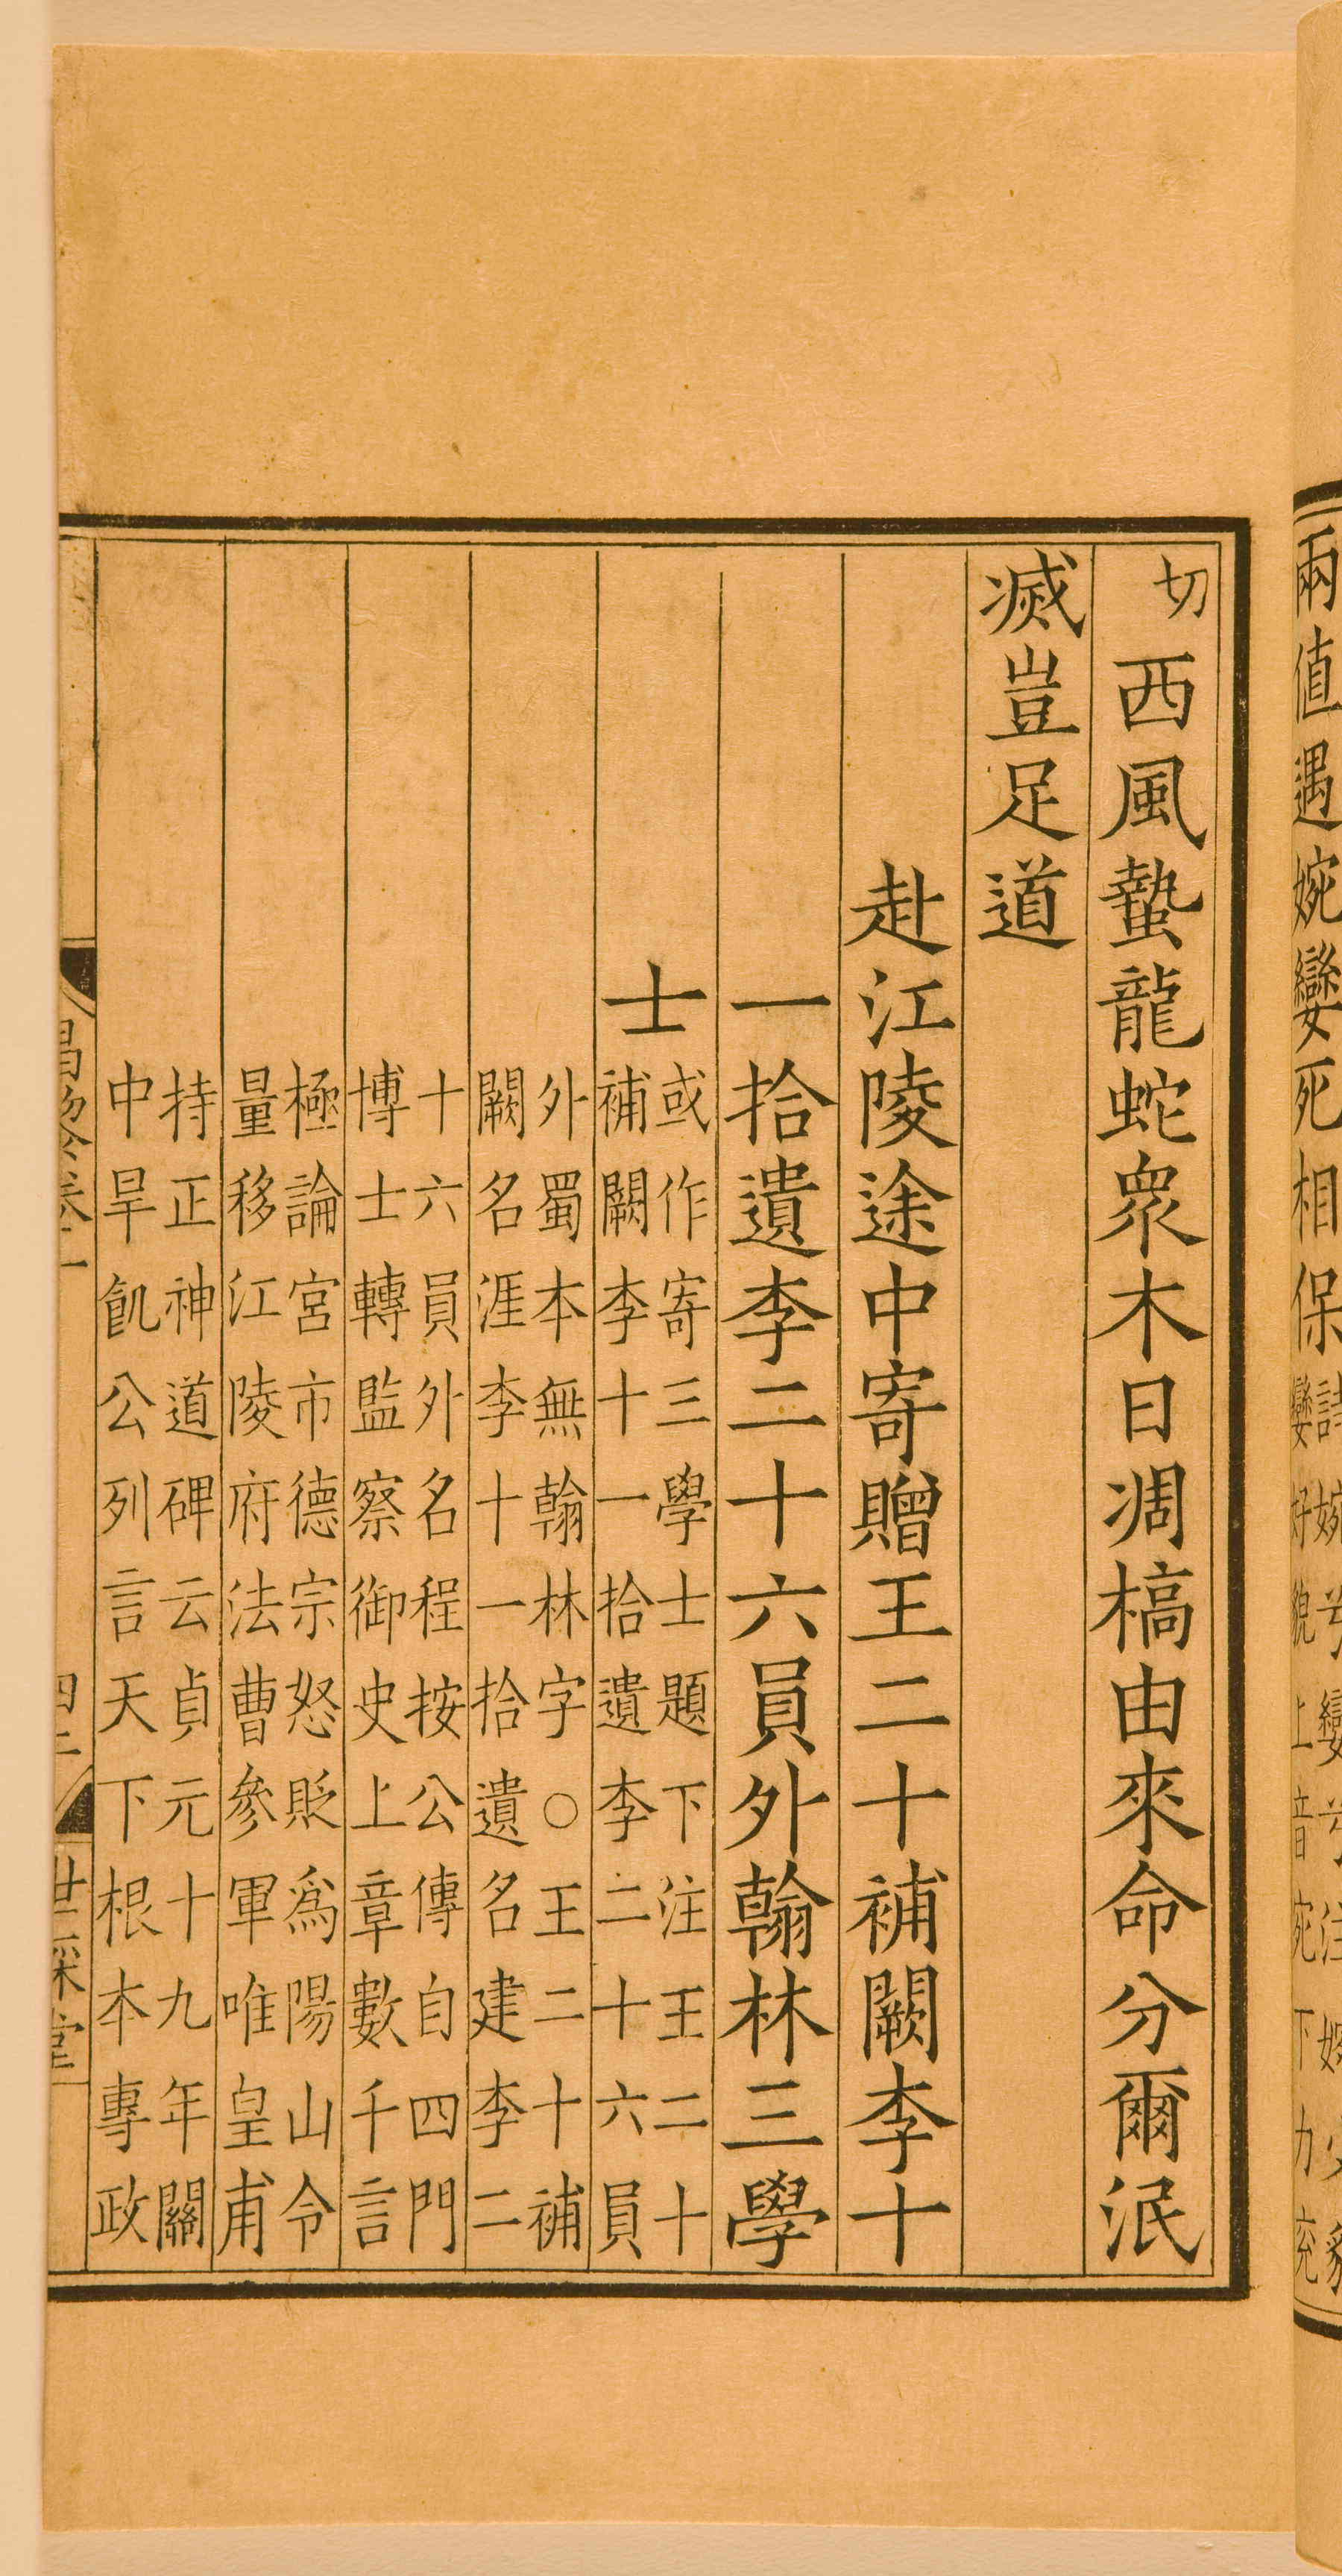 兩值遇婉孌死相保
切西風蟄龍蛇衆木日凋槁由來命分爾泯
滅豈足道
赴江陵途中寄贈王二十補闕李十
一拾遺李二十六員外翰林三學
士
或作寄三學士題下注王二十
補闕李十一拾遺李二十六員
外蜀本無翰林字○王二十補
闕名涯李十一拾遺名建李二
十六員外名程按公傳自四門
博士轉監察御史上章數千言
極論宮市德宗怒貶爲陽山令
量移江陵府法曹參軍唯皇甫
持正神道碑云貞元十九年關
中旱飢公列言天下根本專政